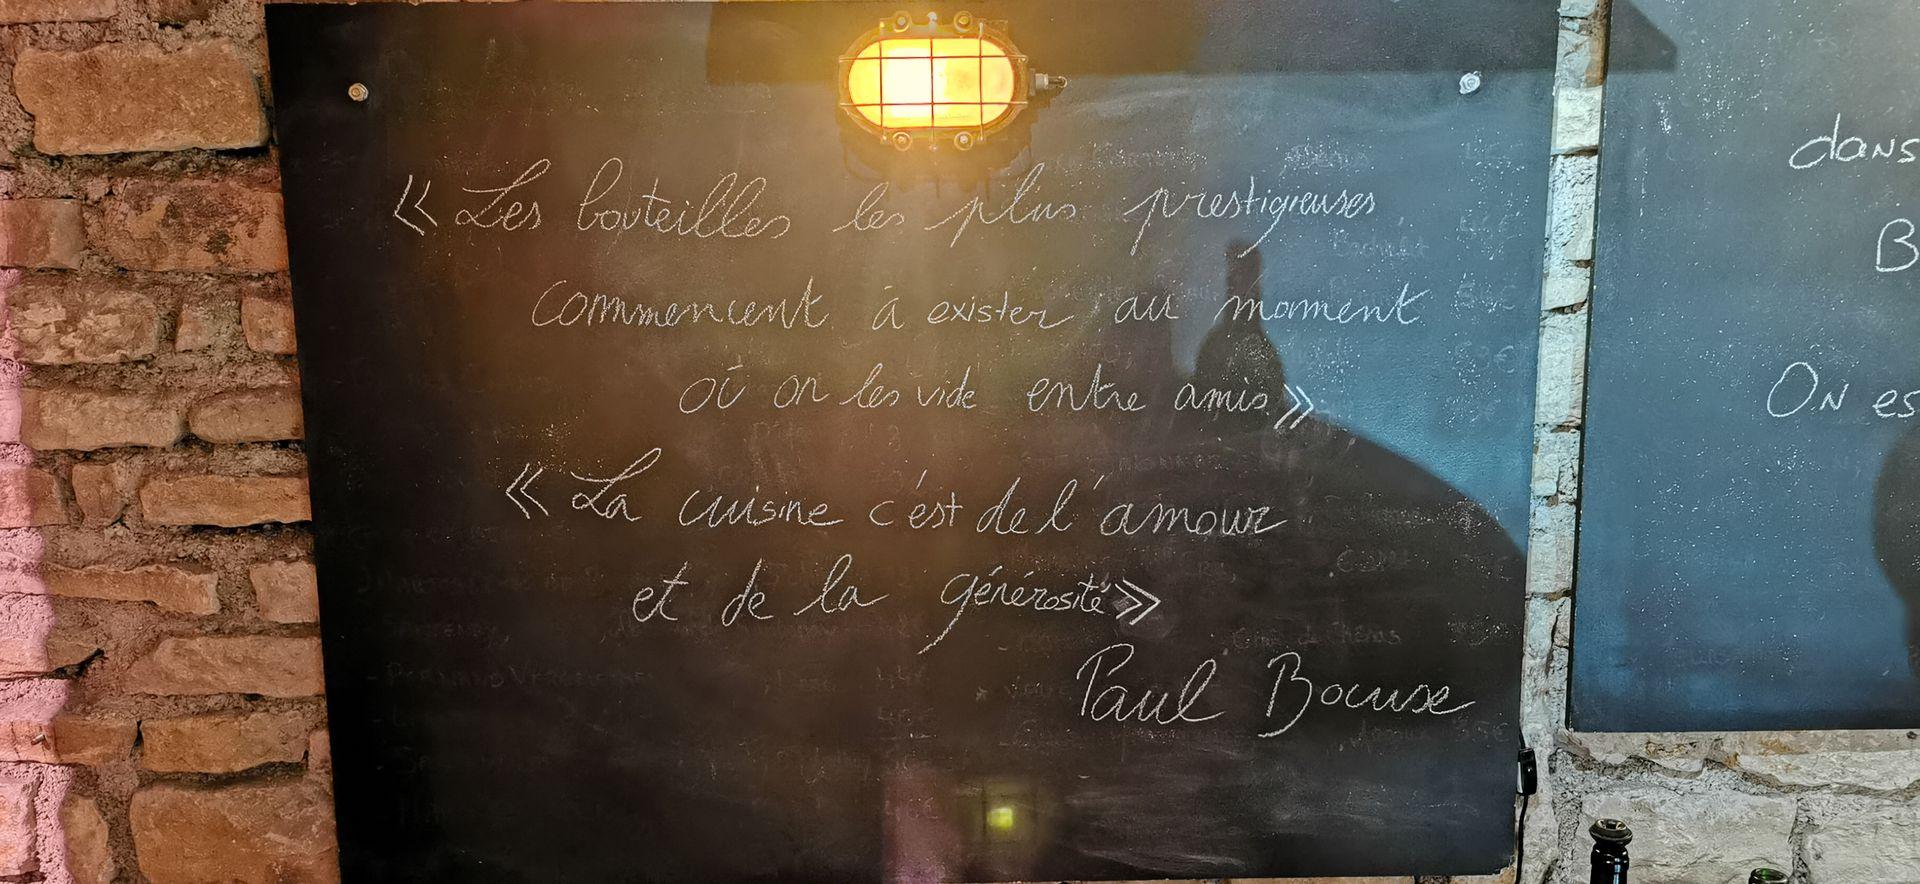 « Les bouteilles les plus prestigieuses
commencent à exister au moment
où on les vide entre amis »
« La cuisine c'est de l'amour
et de la générosité »
Paul Bocuse
dans
B
On es